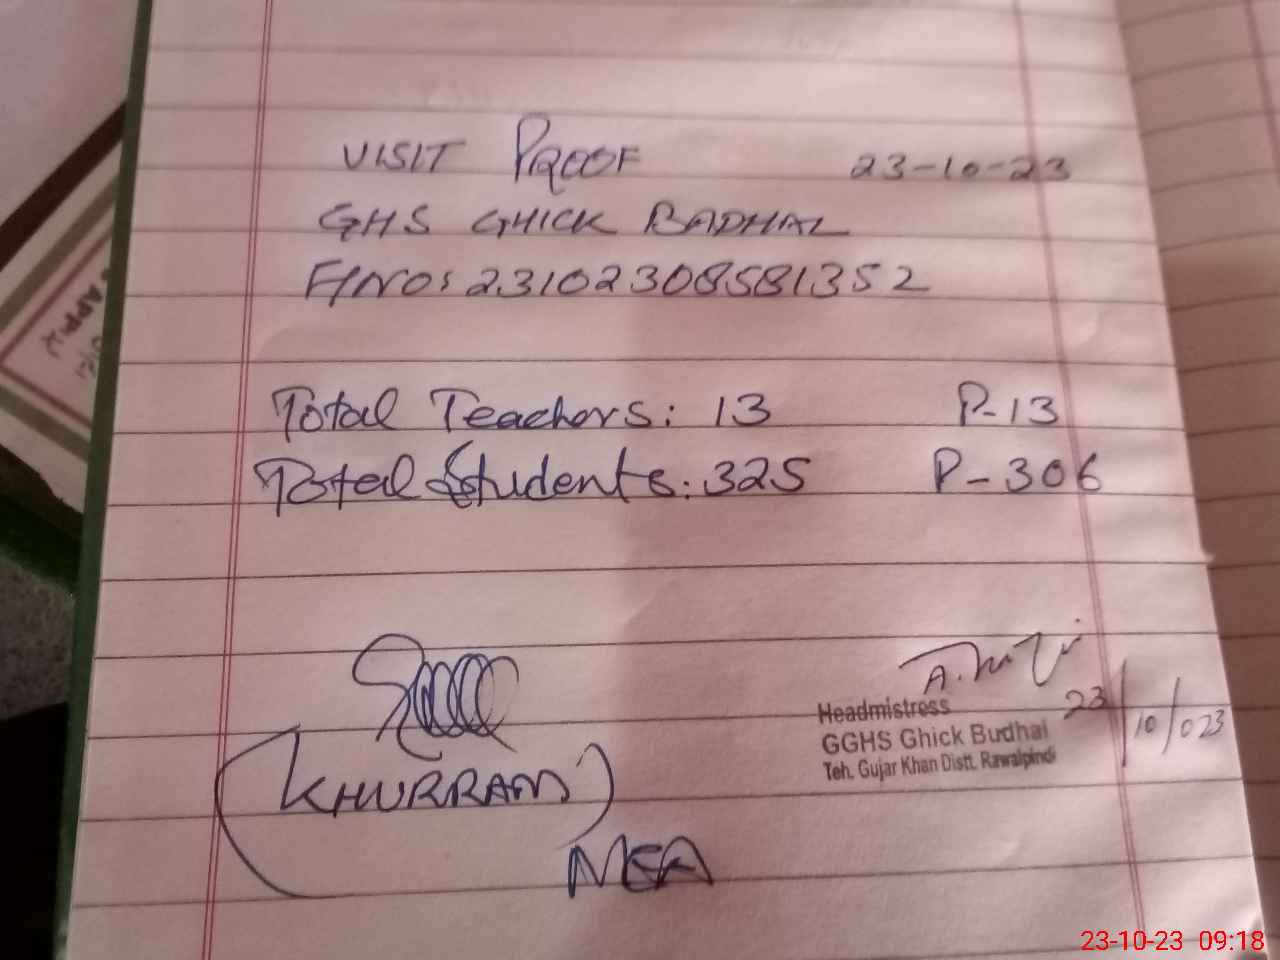 VISIT PROOF 23-10-23
GHS GHICK BADHAL
F/NO: 23102308581352
Total Teachers: 13 P-13
Total Students: 325 P-306
Headmistress
GGHS Ghick Budhal
Teh. Gujar Khan Distt. Rawalpindi
23/10/023
(KHURRAM)
MEA
23-10-23 09:18